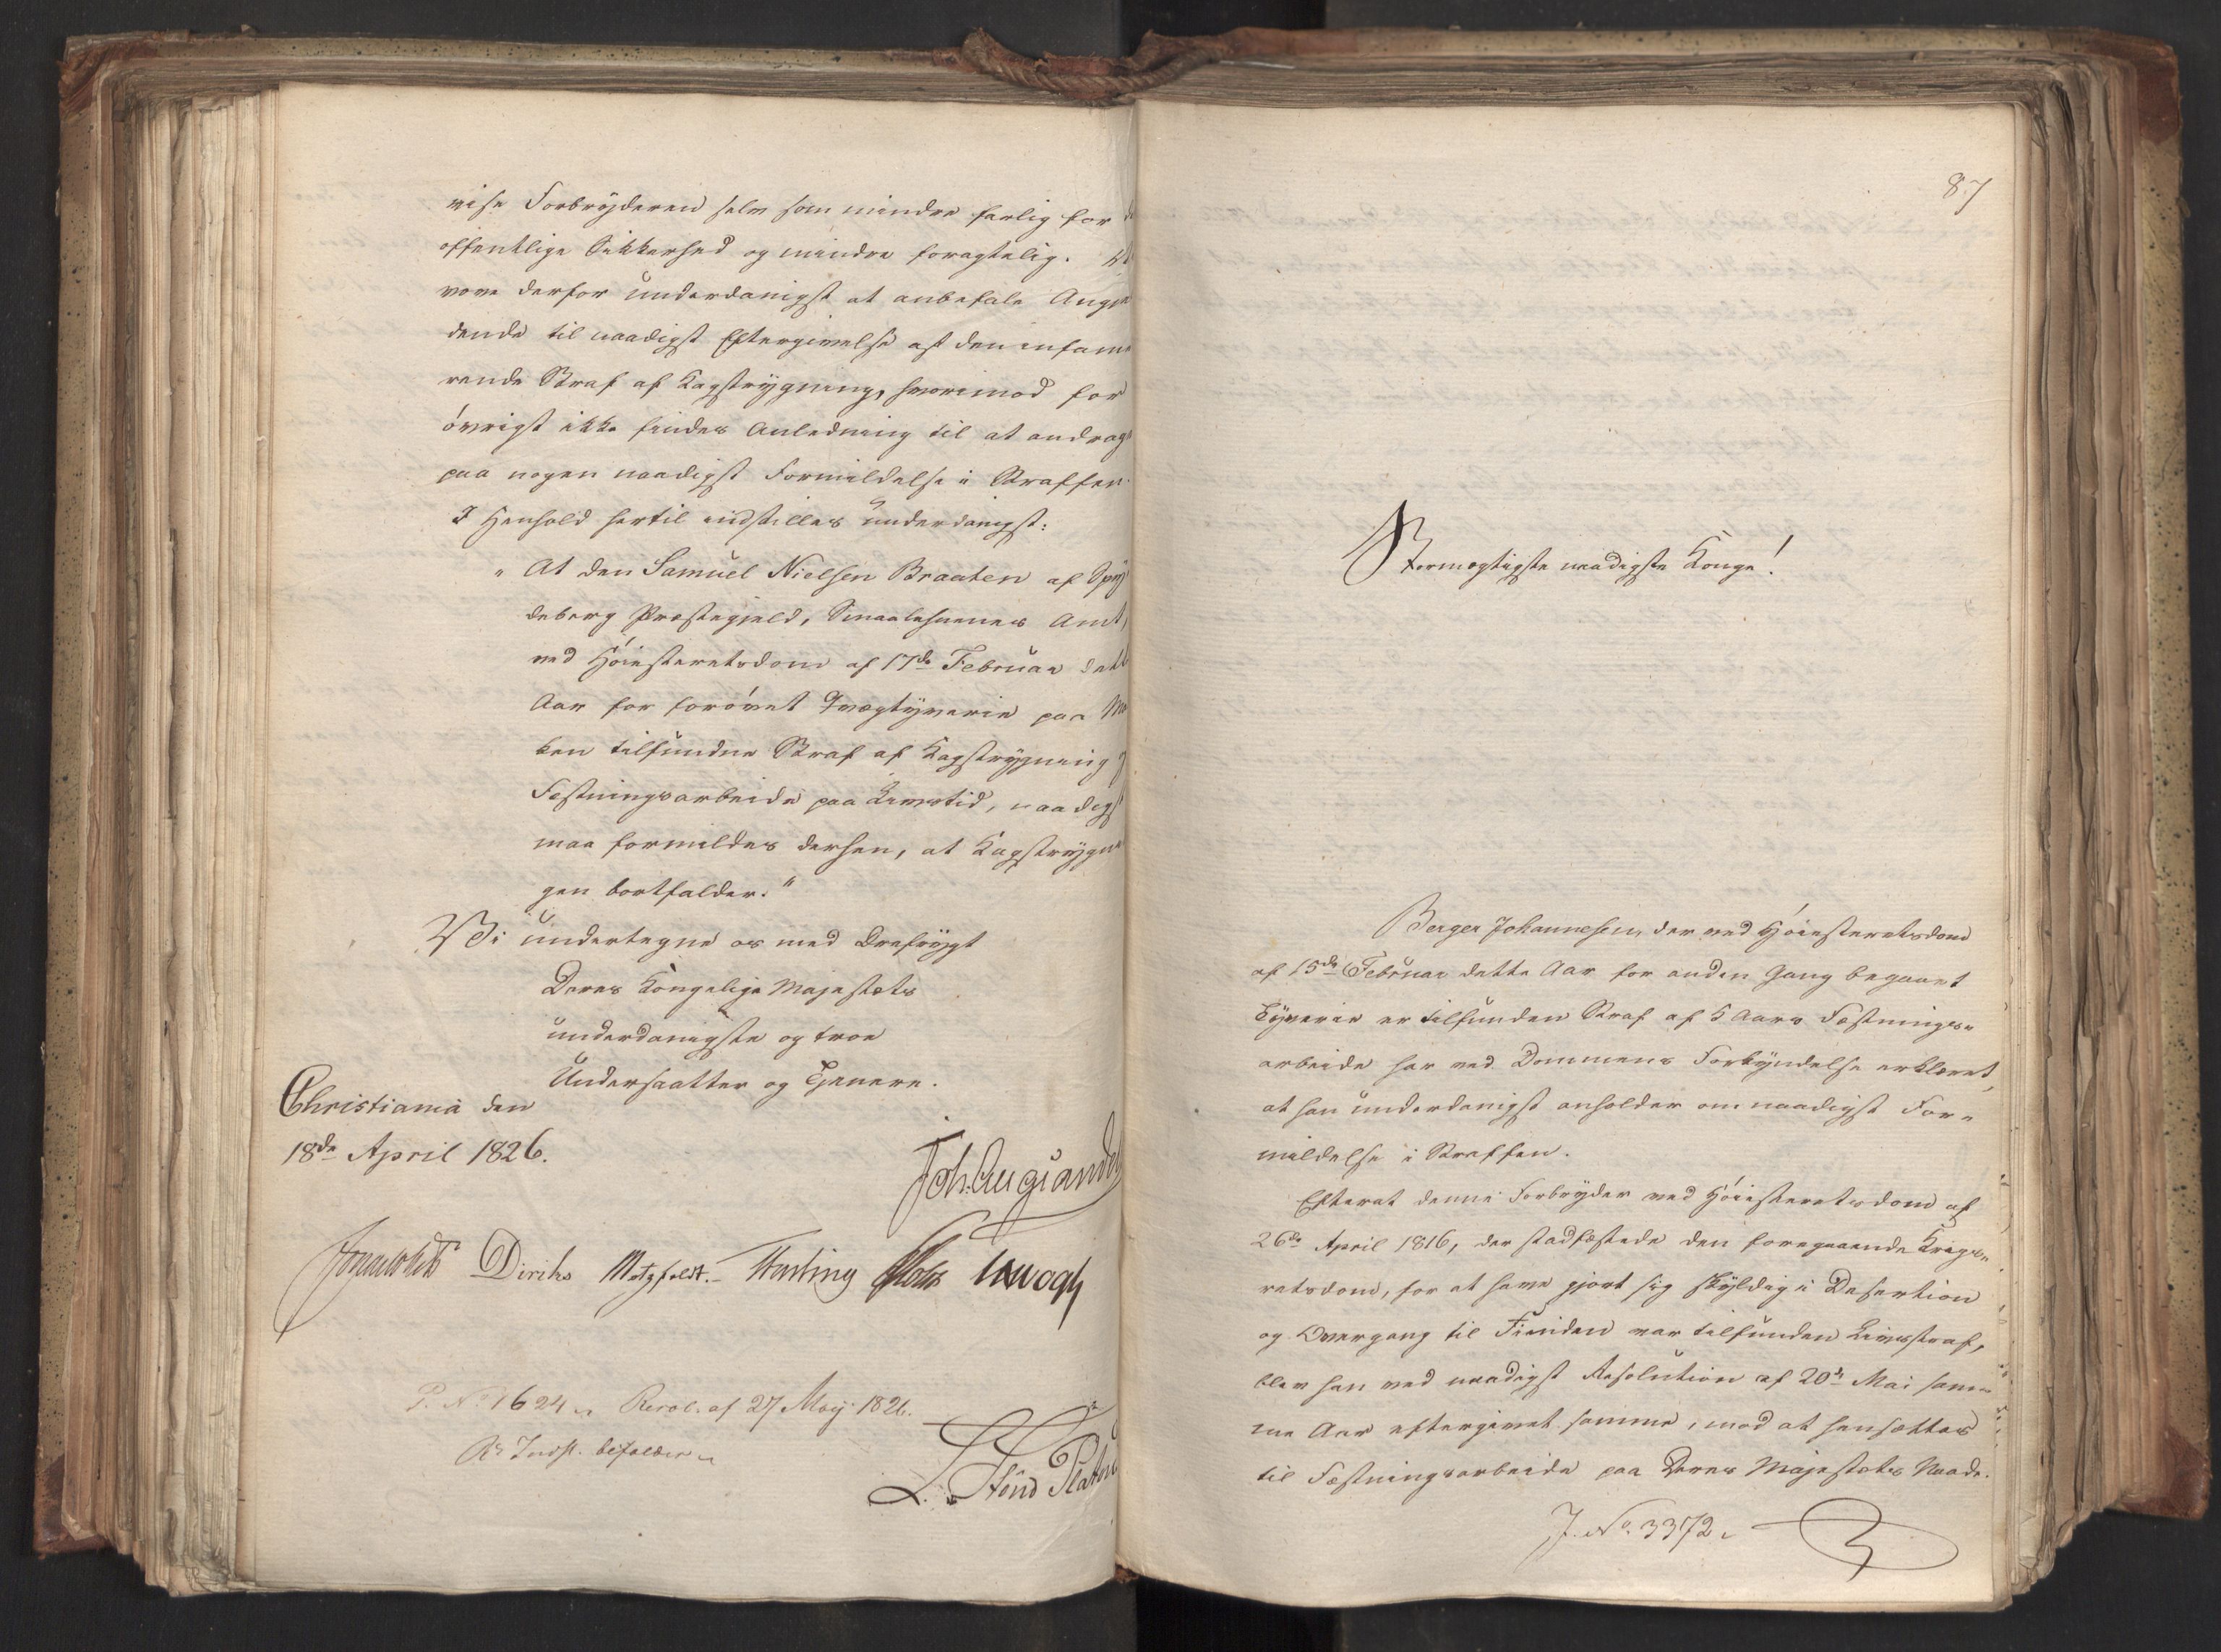 vise Forbryderen selv som mindre farlig for
offentlige Sikkerhed og mindre foragtelig.
vove derfor underdanigst at anbefale Angjæ
dende til naadigst Eftergivelse af den infame
rende Straf af Kagstrygning, hvorimod for
övrigt ikke findes Anledning til at andrage
paa nogen naadigst Formildelse i Straffen.
I Henhold hertil indstilles underdanigst:
„At den Samuel Nielsen Braaten af Spy
deberg Præstegjeld, Smaalehnenes Amt,
ved Höiesteretsdom af 17de Februar dette
Aar for forövet Qvægtyverie paa Mar
ken tilfundne Straf af Kagstrygning
Fæstningsarbeide paa Livstid, naadigst
maa formildes derhen, at Kagstrygnin
gen bortfalder."
Vi undertegne os med Ærefrygt
Deres Kongelige Majestæts
underdanigste og troe
Undersaatter og Tjenere.
Christiania den
18de April 1826.
Joh. Aug. Sandels
Sommerhielm Diriks Motzfeldt. Fasting Holst Krogh
P. No 1624. Resol. af 27 May 1826.
At Indst. bifaldes
87
Stormægtigste naadigste Konge!
Berger Johannesen, der ved Höiesteretsdom
af 15de Februar dette Aar for anden Gang begaaet
Tyverie er tilfunden Straf af 5 Aars Fæstnings-
arbeide har ved Dommens Forkyndelse erklæret,
at han underdanigst anholder om naadigst For-
mildelse i Straffen.
Efterat denne Forbryder ved Höiesteretsdom af
26de April 1816, der stadfæstede den foregaaende Krigs-
retsdom, for at have gjort sig skyldig i Desertion
og Overgang til Fienden var tilfunden Livsstraf,
blev han ved naadigst Resolution af 20de Mai sam-
me Aar eftergivet samme, mod at hensættes
til Fæstningsarbeide paa Deres Majestæts Naade.
J. No. 3372.